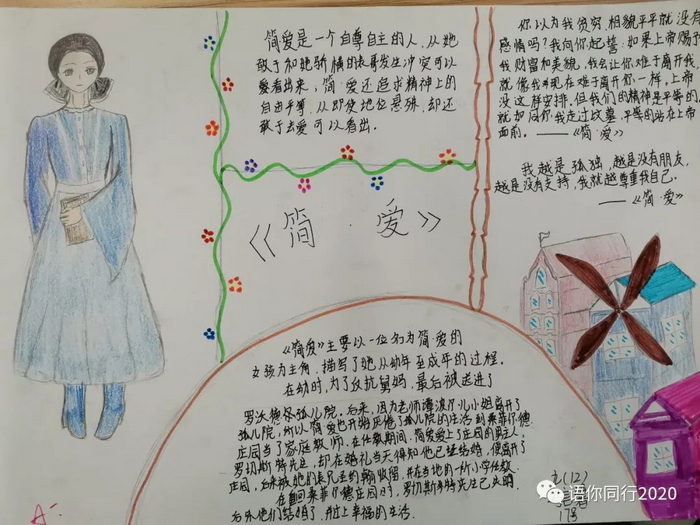 简爱是一个自尊自主的人,从她
敢于和她骄横的表哥发生冲突可以
看出来,简·爱还追求精神上的
自由平等,从即使地位悬殊,却还
敢于去爱可以看出。
你以为我贫穷,相貌平平就没有
感情吗?我向你起誓:如果上帝赐予
我财富和美貌,我会让你难于离开我,
就像我现在难于离开你一样,上帝
没这样安排,但我们的精神是平等的,
就如同你我走过坟墓,平等的站在上帝
面前。——《简·爱》
我越是孤独,越是没有朋友,
越是没有支持,我就越尊重我自己。
——《简·爱》
《简·爱》
《简爱》主要以一位名为简·爱的
女孩为主角,描写了她从幼年至成年的过程。
在幼时,为了反抗舅妈,最后被送进了
罗沃德孤儿院。后来,因为老师谭波尔儿小姐离开了
孤儿院,所以简·爱也开始厌倦了孤儿院的生活,到桑菲尔德
庄园当了家庭教师,在任教期间,简爱爱上了庄园的男主人,
罗切斯特先生,却在婚礼当天得知他已经结婚,便离开了
庄园,后来被她们表兄圣约翰收留,并在当地的一所小学任教。
在重回桑菲尔德庄园时,罗切斯特先生已失明,
后来他们结婚了,并过上幸福的生活。
(12)
17号
A-
语你同行2020